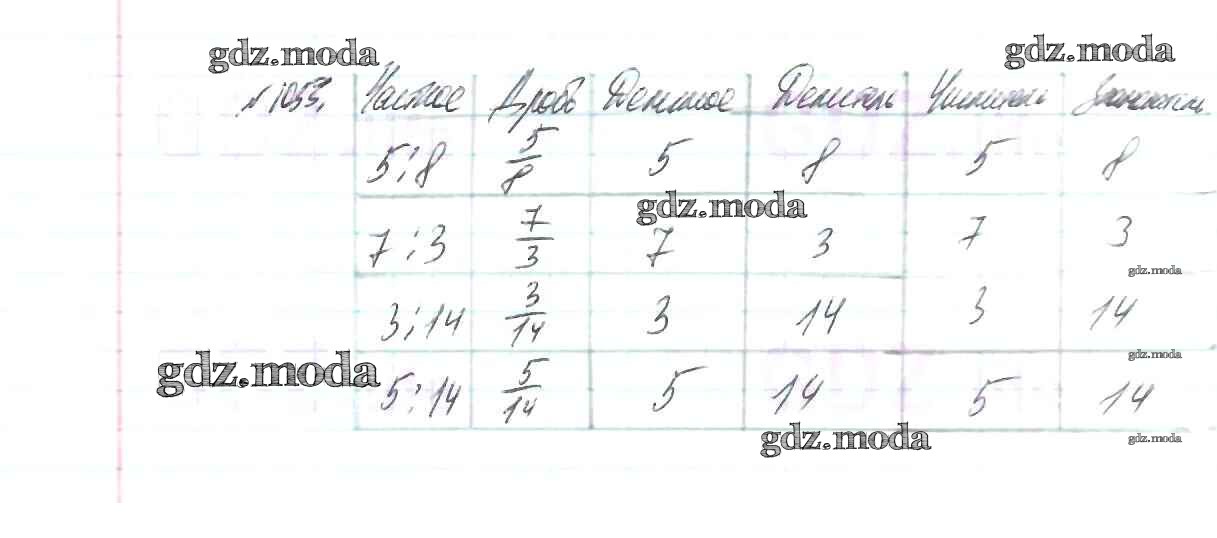 gdz.moda gdz.moda
№1053. Частное Дробь Делимое Делитель Числитель Знаменатель
5:8 5/8 5 8 5 8
gdz.moda
7:3 7/3 7 3 7 3
gdz.moda
3:14 3/14 3 14 3 14
gdz.moda gdz.moda
5:14 5/14 5 14 5 14
gdz.moda gdz.moda